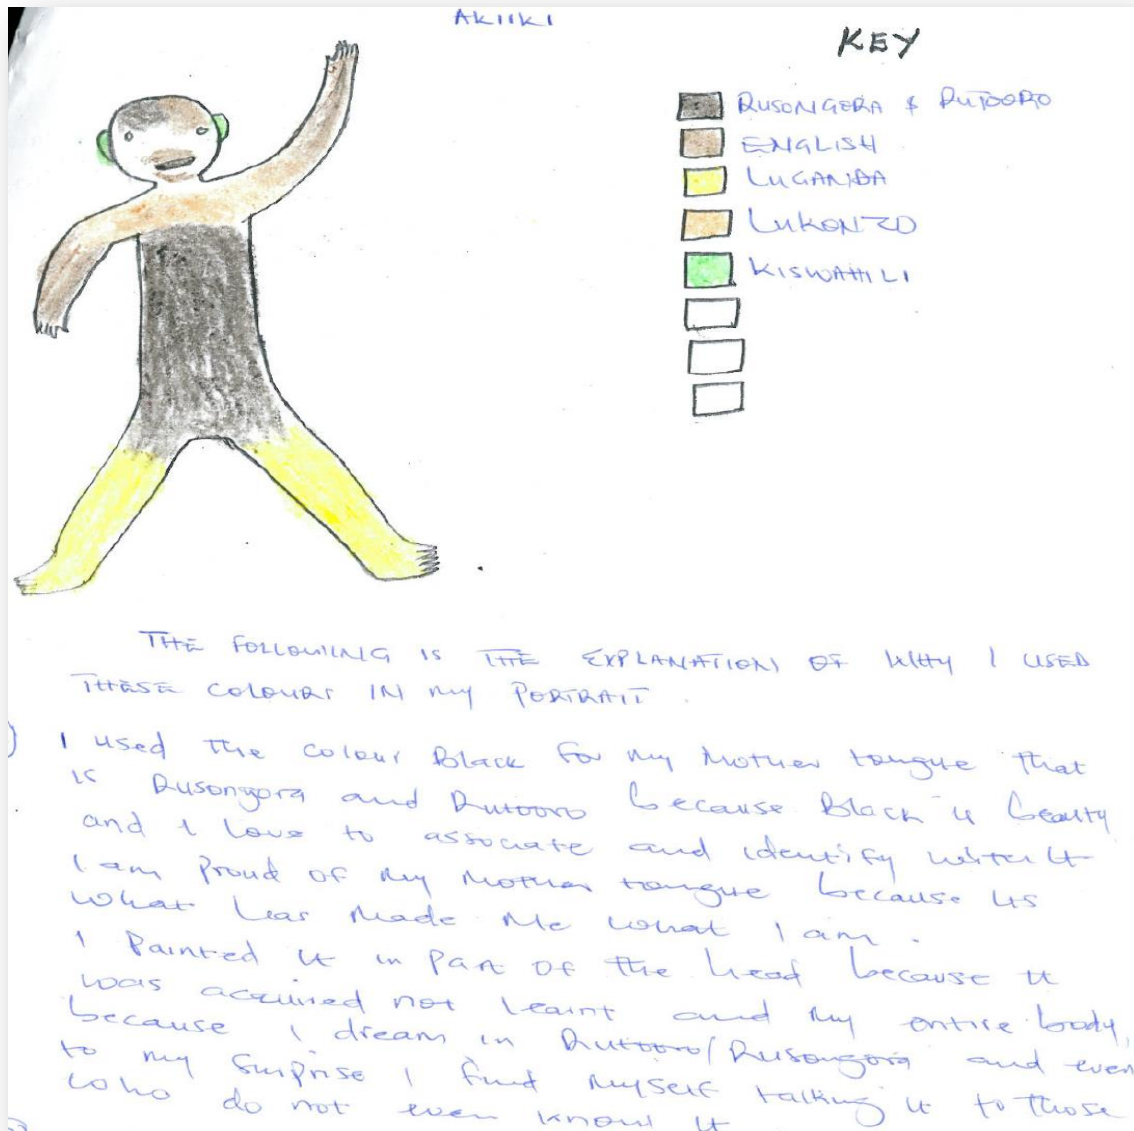 AKIIKI
KEY
RUSONGERA & RUTOORO
ENGLISH
LUGANDA
LUKONZO
KISWAHILI
THE FOLLOWING IS THE EXPLANATION OF WHY I USED
THESE COLOURS IN MY PORTRAIT.
I used the colour Black for my Mother tongue that
is Rusongora and Rutooro because Black is beauty
and I love to associate and identify with it
I am proud of my mother tongue because its
what has made me what I am.
I Painted it in part of the head because it
was acquired not learnt and my entire body,
because I dream in Rutooro/Rusongora and even
to my surprise I find myself talking it to those
who do not even know it